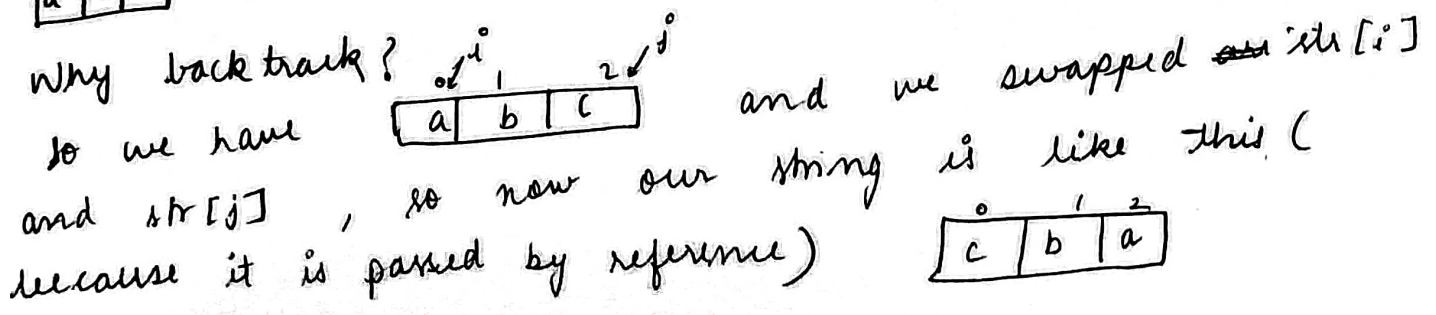 a
Why back track?
i
j
0 1 2
a b c
so we have and we swapped str[i]
and str[j] , so now our string is like this (
because it is passed by reference)
0 1 2
c b a